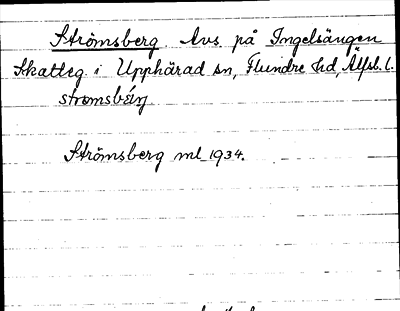 Strömsberg Avs. på Ingelsängen
Skatteg. i Upphärad sn, Flundre hd, Älfsb. l.
strömsbærj
Strömsberg ml 1934.